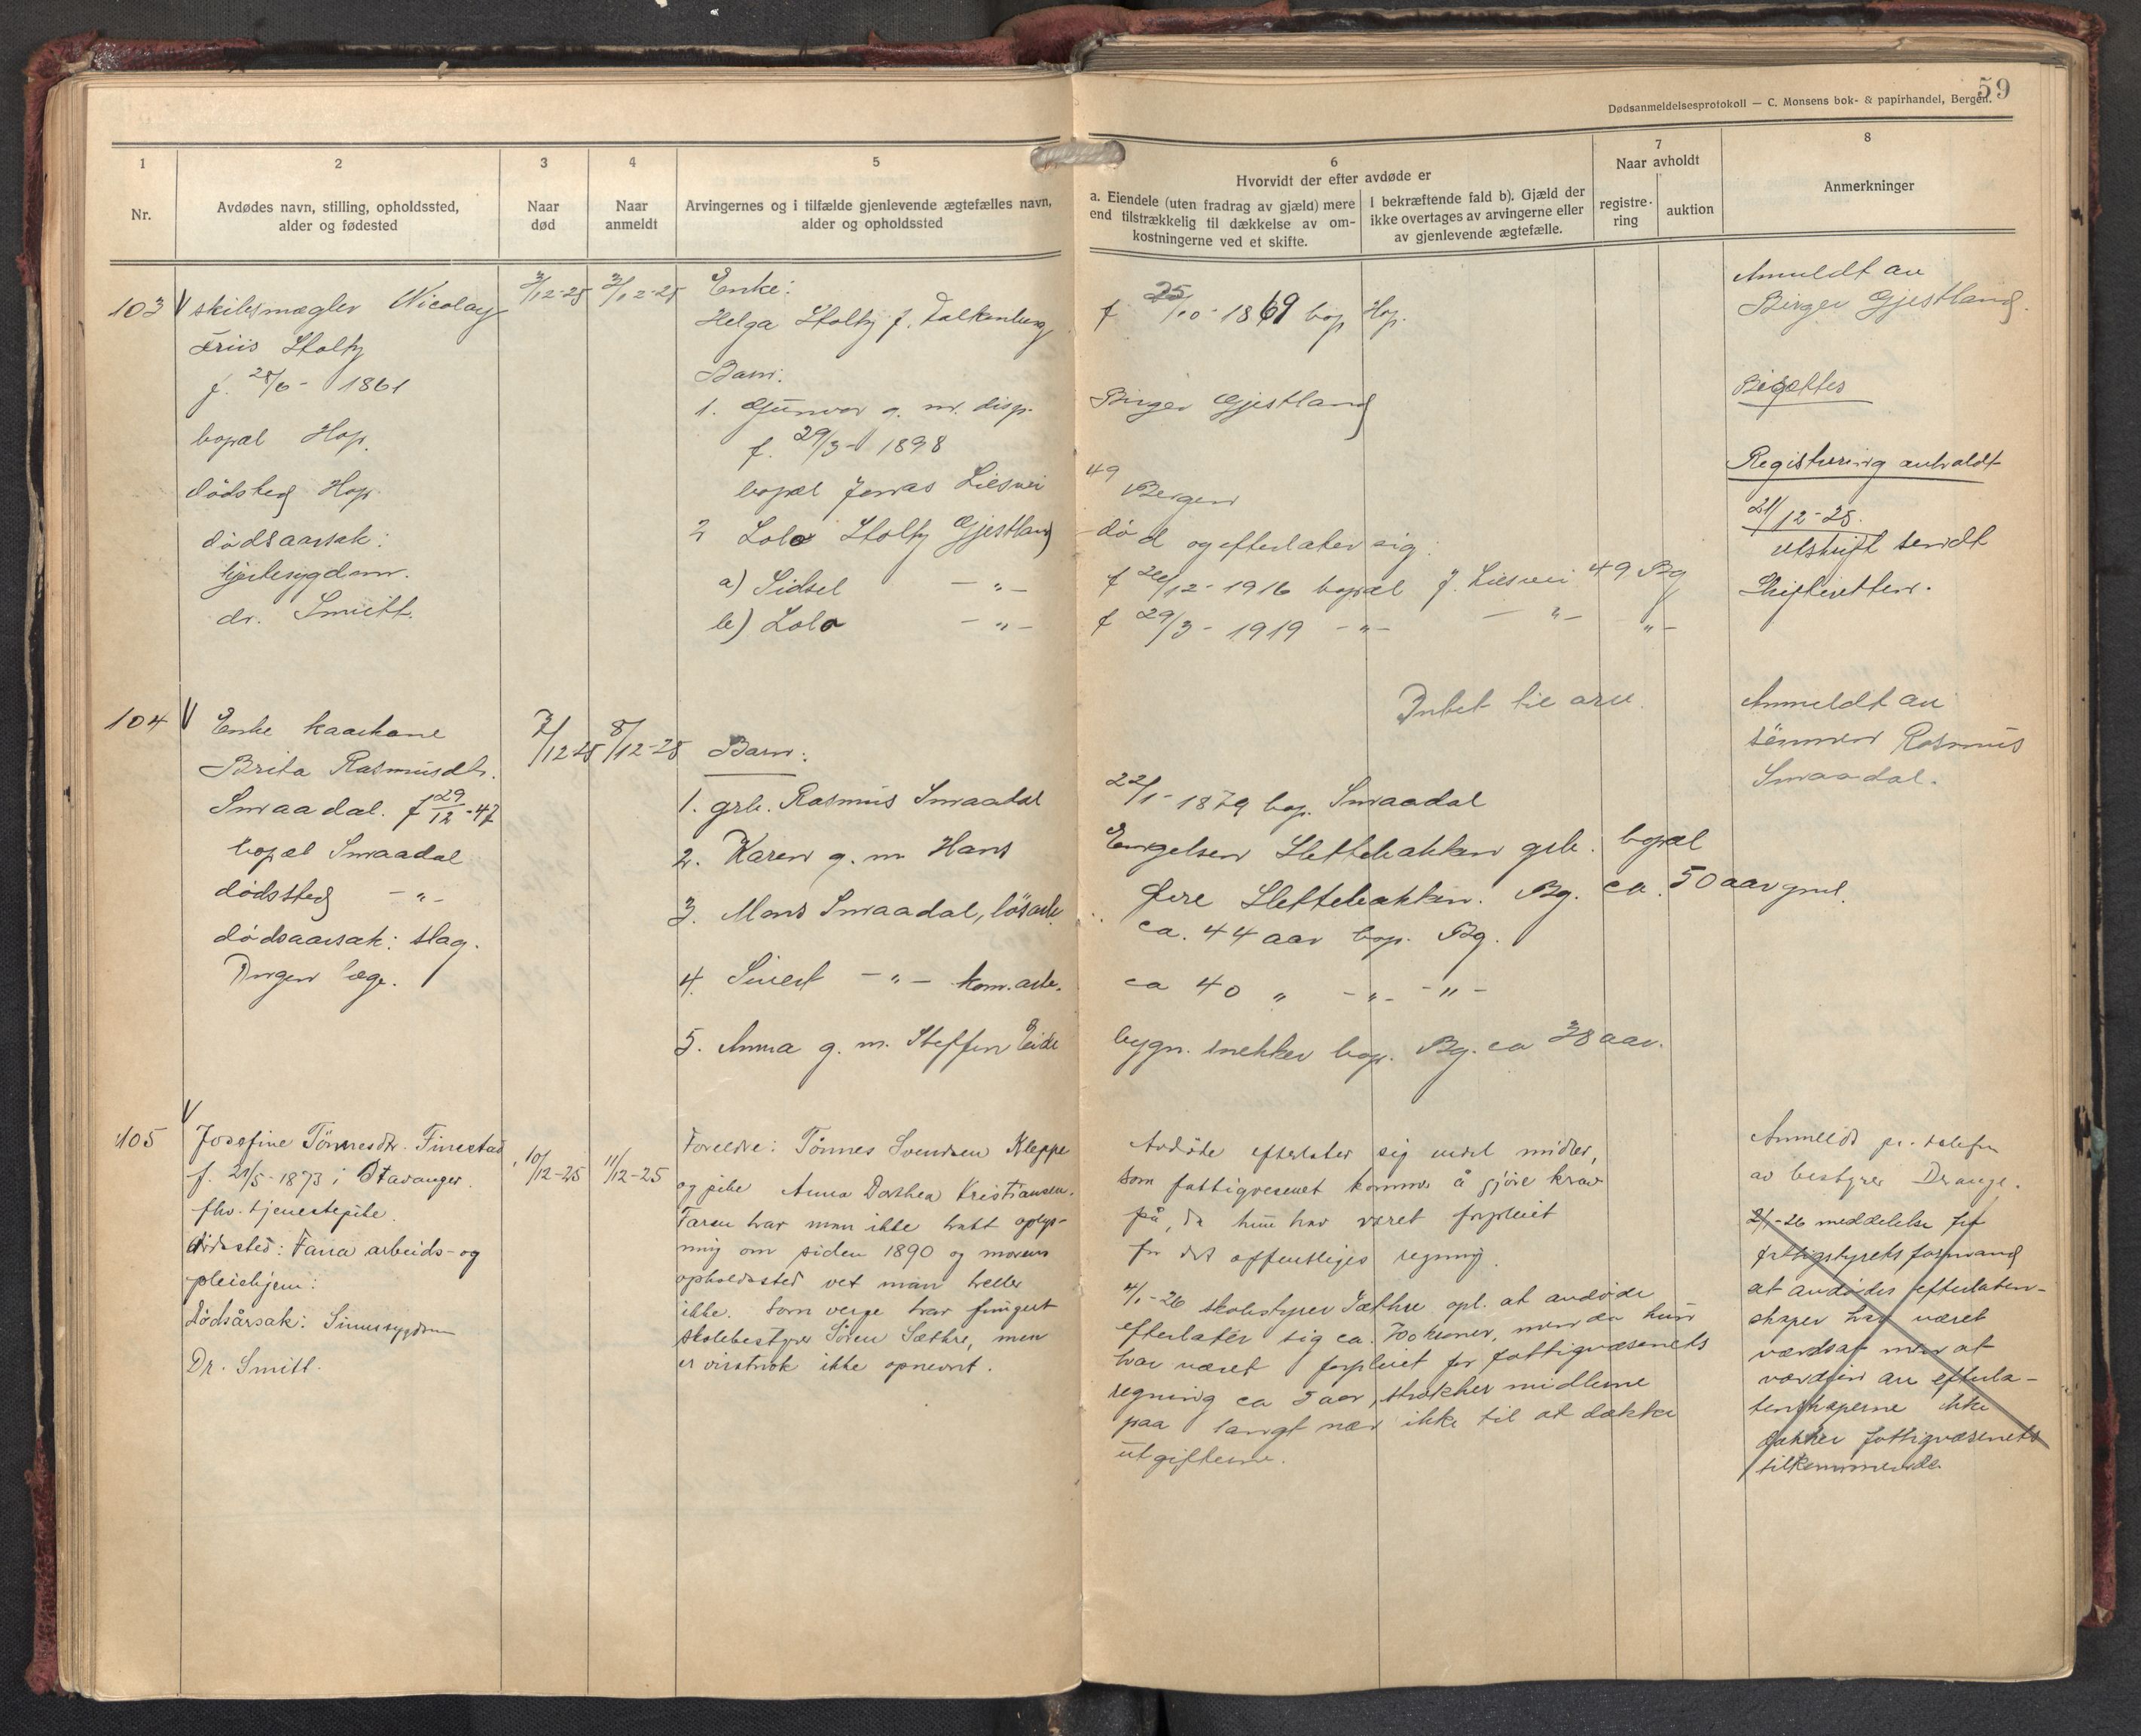 59
Dødsanmeldelsesprotokoll — C. Monsens bok- & papirhandel, Bergen.
1
2
3
4
5
6
7
8
Nr.
Avdødes navn, stilling, opholdssted,
alder og fødested
Naar
død
Naar
anmeldt
Arvingernes og i tilfælde gjenlevende ægtefælles navn,
alder og opholdssted
Hvorvidt der efter avdøde er
a. Eiendele (uten fradrag av gjæld) mere
end tilstrækkelig til dækkelse av om-
kostningerne ved et skifte.
I bekræftende fald b). Gjæld der
ikke overtages av arvingerne eller
av gjenlevende ægtefælle.
Naar avholdt
registre-
ring
auktion
Anmerkninger
103
skibsmægler Nicolay
Friis Stoltz
f. 28/6 - 1861
bopæl Hop.
dödsted Hop.
dödsaarsak:
hjertesygdom.
dr. Smitt.
3/12-25
3/12-25
Enke:
Helga Stoltz f. Falkenberg
f 25/10-1869 bop Hop.
Barn:
1. Gunvor g. m. disp. Birger Gjestland
f. 29/3- 1898
bopæl Jonas Liesvei 49 Bergen
2 Lola Stoltz Gjestland död og efterlater sig:
a) Sidsel -"- f 26/12-1916 bopæl J. Liesvei 49 Bg
b) Lola -"- f 29/3-1919 -"- -"- "-
Anmeldt av
Birger Gjestland.
Bisættes
Registrering avholdt
21/12-25.
utskrift sendt
Skifteretten.
104
Enke kaarkone
Brita Rasmusdtr.
Smaadal. f 29/12-47
bopæl Smaadal
dödssted -"-
dödsaarsak: slag.
Ingen læge.
7/12-25
8/12-25
Barn:
Intet til arv.
1. grb. Rasmus Smaadal 22/1-1879 bop. Smaadal
2. Karen g. m Hans Engelsen Slettebakken grb. bopæl
Övre Slettebakken. Bg. ca. 50 aar gml.
3. Mons Smaadal, lösarb. ca. 44 aar bop. Bg.
4. Sivert -"- kom. arb. ca 40 " -"- -"-
5. Anna g. m. Steffen Eide bygn. snekker bop. Bg. ca 38 aar.
Anmeldt av
sönnen Rasmus
Smaadal.
105
Josefine Tönnesdtr. Finestad
f. 21/5-1873 i Stavanger.
fhv. tjenestepike.
dödssted: Fana arbeids- og
pleiehjem:
Dödsårsak: Sinnssygdom
Dr. Smitt.
10/12-25
11/12-25
Foreldre: Tönnes Svendsen Kleppe
og pike Anna Dorthea Kristiansen.
Faren har man ikke hatt oplys-
ning om siden 1890 og morens
opholdssted vet man heller
ikke. Som verge har fungert
skolebestyrer Sören Sæthre, men
er visstnok ikke opnevnt.
Avdöde efterlater sig endel midler,
som fattigvesenet kommer å gjöre krav
på, da hun har været forpleiet
for det offentliges regning.
4/1-26 skolestyrer Sæthre opl. at avdöde
efterlater sig ca. 700 kroner, men da hun
har været forpleiet for fattigvæsenets
regning ca 5 aar, strækker midlerne
paa langt nær ikke til at dække
utgifterne.
Anmeldt pr. telefon
av bestyrer
2/1-26 meddelelse fra
fattigstyrets formand
at avdödes efterlaten-
skaper har været
værdsat men at
værdien av efterla-
tenskaperne ikke
dækker fattigvæsenets
tilkommende